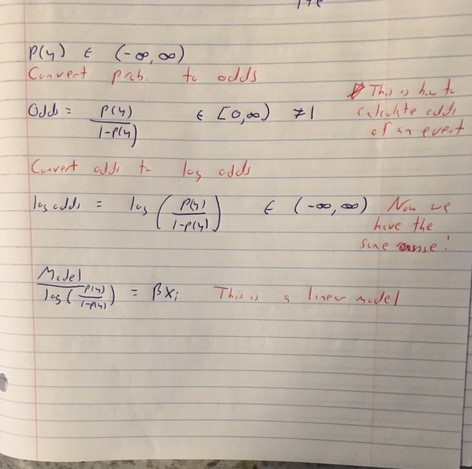 P(y) ∈ (-∞, ∞)
Convert prob. to odds
Odds = P(y) / 1-P(y) ∈ [0,∞) ≠1
This is how to
calculate odds
of an event
Convert odds to log odds
log odds = log ( P(y) / 1-P(y) ) ∈ (-∞, ∞)
Now we
have the
same range!
Model
log ( P(y) / 1-P(y) ) = βxᵢ This is a linear model